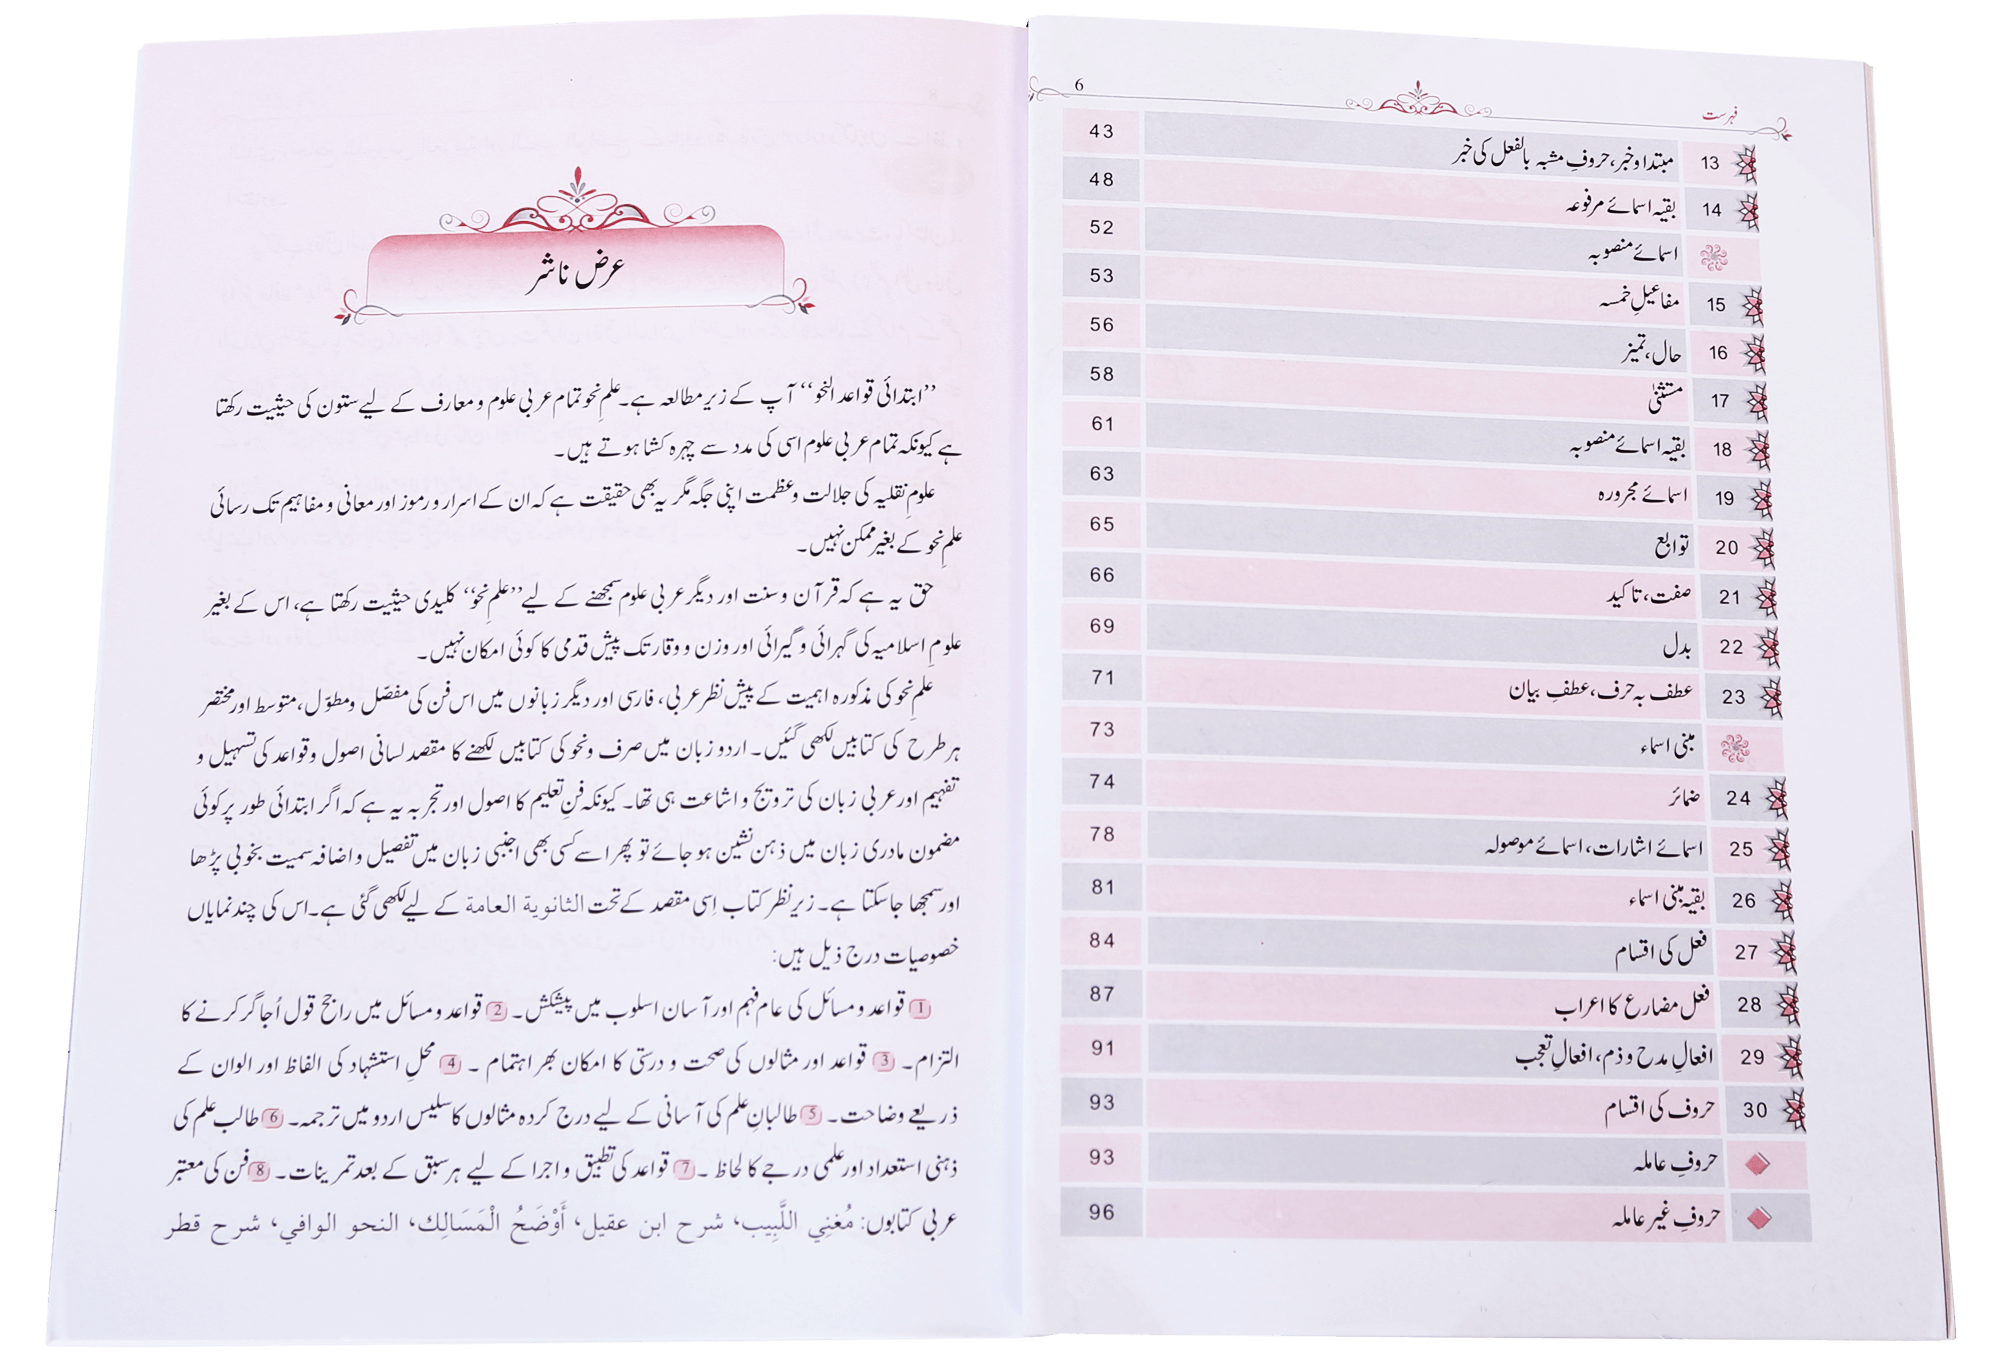 6
فہرست
13 مبتدا و خبر، حروفِ مشبہ بالفعل کی خبر 43
14 بقیہ اسمائے مرفوعہ 48
اسمائے منصوبہ 52
15 مفاعیلِ خمسہ 53
16 حال، تمیز 56
17 مستثنیٰ 58
18 بقیہ اسمائے منصوبہ 61
19 اسمائے مجرورہ 63
20 توابع 65
21 صفت، تاکید 66
22 بدل 69
23 عطف بہ حرف، عطفِ بیان 71
مبنی اسماء 73
24 ضمائر 74
25 اسمائے اشارات، اسمائے موصولہ 78
26 بقیہ مبنی اسماء 81
27 فعل کی اقسام 84
28 فعل مضارع کا اعراب 87
29 افعالِ مدح و ذم، افعالِ تعجب 91
30 حروف کی اقسام 93
حروفِ عاملہ 93
حروفِ غیر عاملہ 96
عرض ناشر
’’ابتدائی قواعد النحو‘‘ آپ کے زیر مطالعہ ہے۔ علمِ نحو تمام عربی علوم و معارف کے لیے ستون کی حیثیت رکھتا
ہے کیونکہ تمام عربی علوم اسی کی مدد سے چہرہ کشا ہوتے ہیں۔
علومِ نقلیہ کی جلالت و عظمت اپنی جگہ مگر یہ بھی حقیقت ہے کہ ان کے اسرار و رموز اور معانی و مفاہیم تک رسائی
علمِ نحو کے بغیر ممکن نہیں۔
حق یہ ہے کہ قرآن و سنت اور دیگر عربی علوم سمجھنے کے لیے ’’علمِ نحو‘‘ کلیدی حیثیت رکھتا ہے، اس کے بغیر
علومِ اسلامیہ کی گہرائی و گیرائی اور وزن و وقار تک پیش قدمی کا کوئی امکان نہیں۔
علمِ نحو کی مذکورہ اہمیت کے پیش نظر عربی، فارسی اور دیگر زبانوں میں اس فن کی مفصّل و مطوّل، متوسط اور مختصر
ہر طرح کی کتابیں لکھی گئیں۔ اردو زبان میں صرف و نحو کی کتابیں لکھنے کا مقصد لسانی اصول و قواعد کی تسہیل و
تفہیم اور عربی زبان کی ترویج و اشاعت ہی تھا۔ کیونکہ فنِ تعلیم کا اصول اور تجربہ یہ ہے کہ اگر ابتدائی طور پر کوئی
مضمون مادری زبان میں ذہن نشین ہو جائے تو پھر اسے کسی بھی اجنبی زبان میں تفصیل و اضافہ سمیت بخوبی پڑھا
اور سمجھا جاسکتا ہے۔ زیر نظر کتاب اِسی مقصد کے تحت الثانوية العامة کے لیے لکھی گئی ہے۔ اس کی چند نمایاں
خصوصیات درج ذیل ہیں:
1 قواعد و مسائل کی عام فہم اور آسان اسلوب میں پیشکش۔ 2 قواعد و مسائل میں راجح قول اُجاگر کرنے کا
التزام۔ 3 قواعد اور مثالوں کی صحت و درستی کا امکان بھر اہتمام ۔ 4 محلِ استشہاد کی الفاظ اور الوان کے
ذریعے وضاحت۔ 5 طالبانِ علم کی آسانی کے لیے درج کردہ مثالوں کا سلیس اردو میں ترجمہ۔ 6 طالب علم کی
ذہنی استعداد اور علمی درجے کا لحاظ ۔ 7 قواعد کی تطبیق و اجرا کے لیے ہر سبق کے بعد تمرینات۔ 8 فن کی معتبر
عربی کتابوں: مُغنِي اللَّبِيب، شرح ابن عقيل، أَوْضَحُ الْمَسَالِك، النحو الوافي، شرح قطر